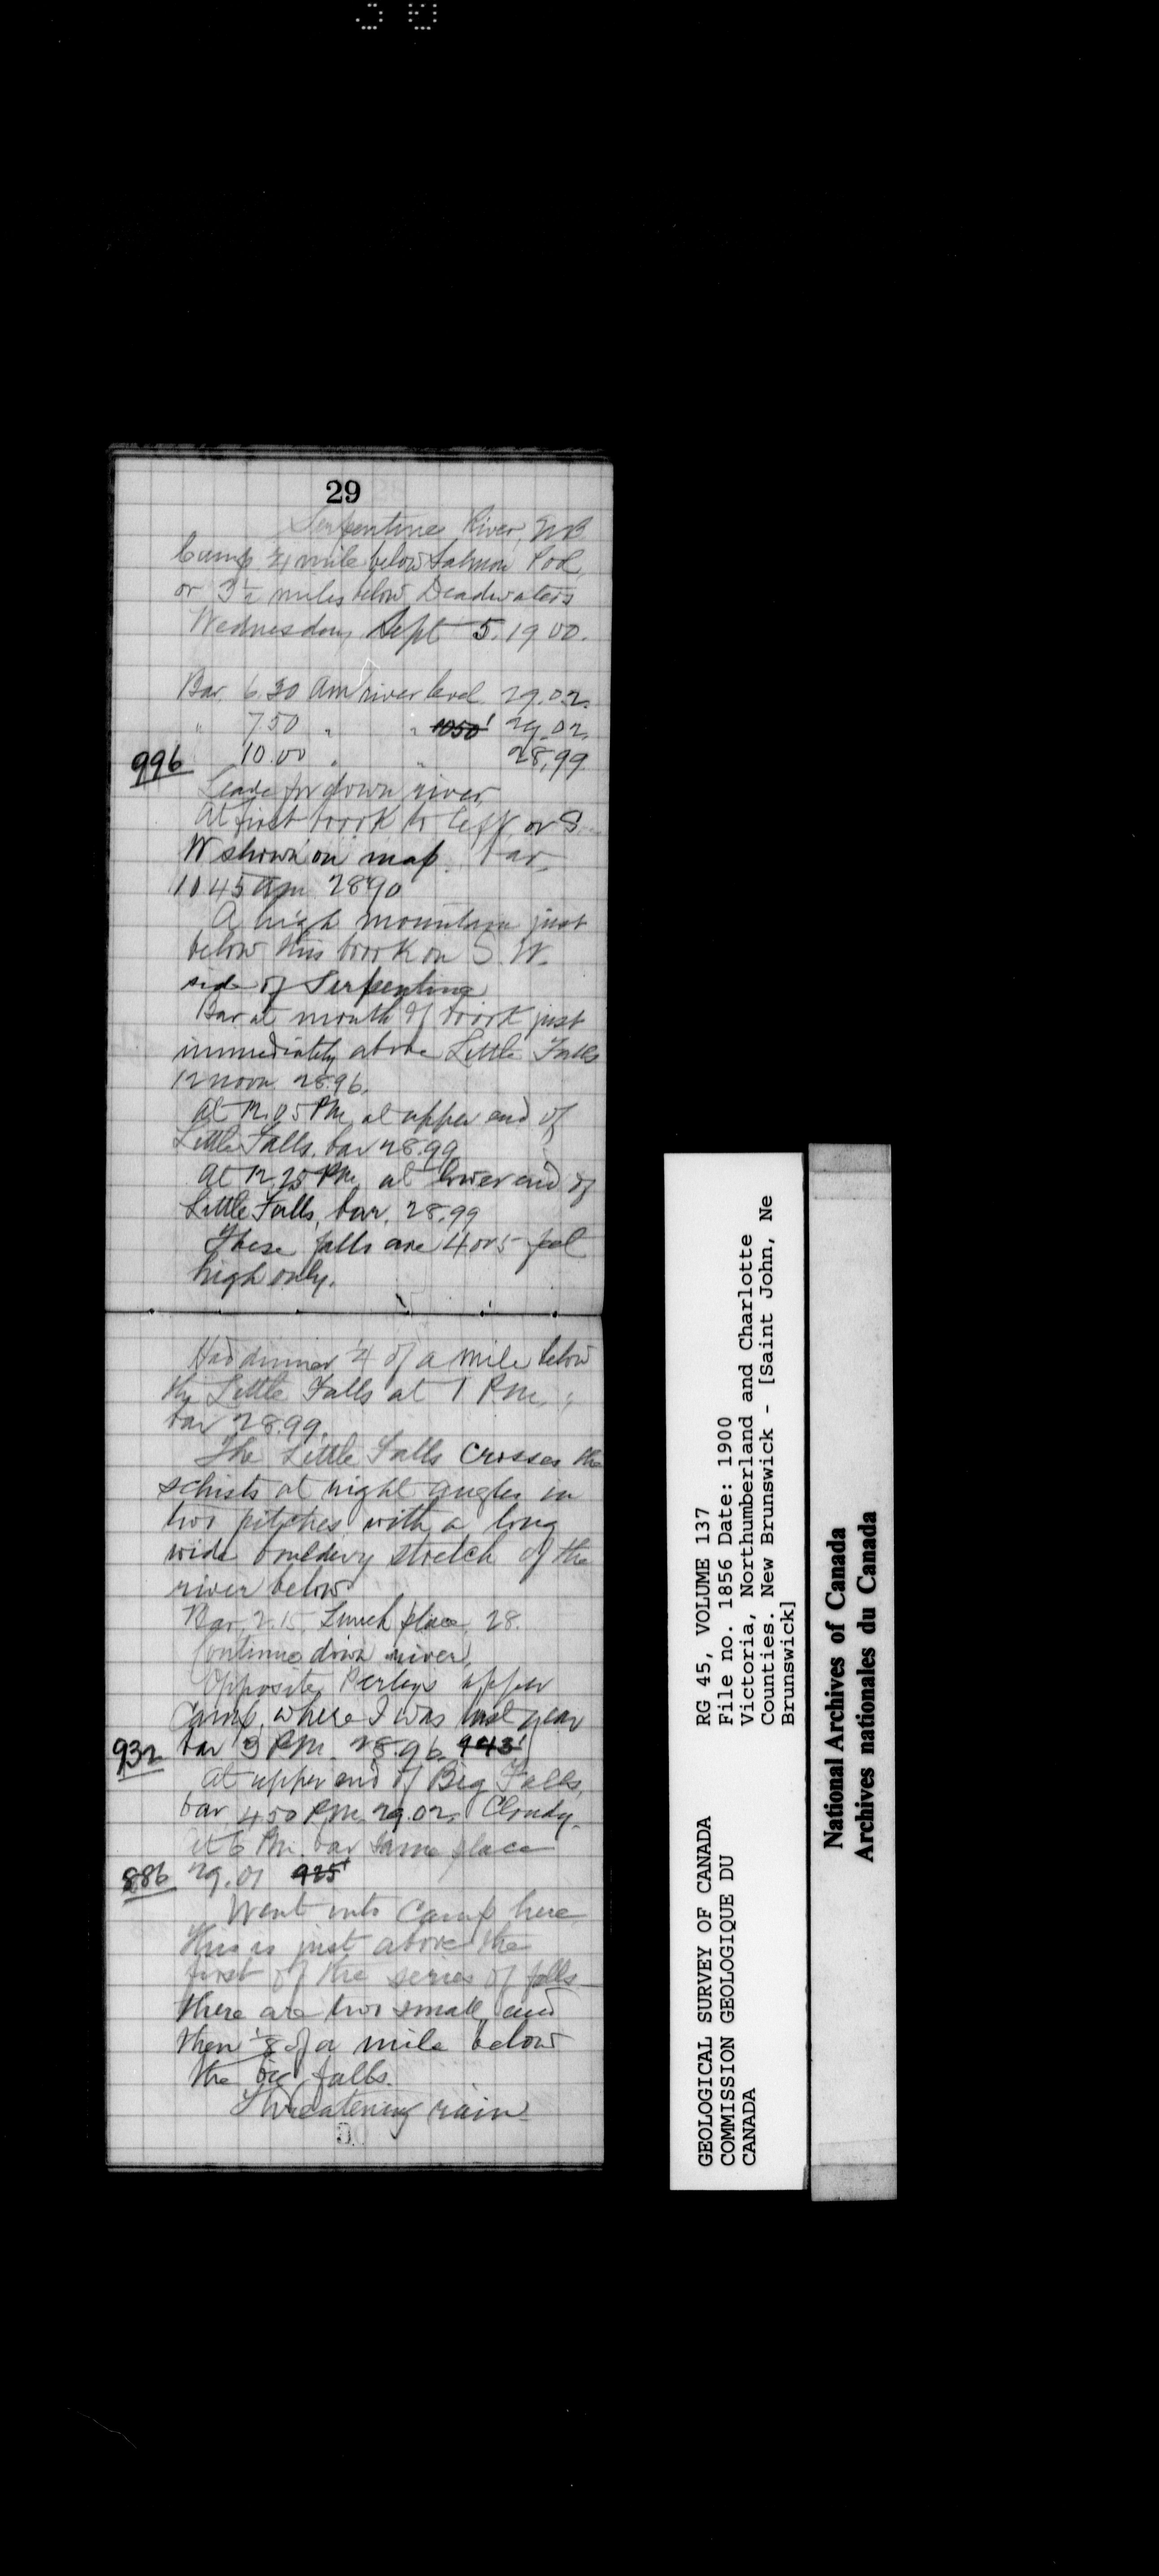 29
Serpentine River, NB
Camp ¼ mile below Salmon Pool,
or 3½ miles below Deadwaters
Wednesday Sept 5. 1900.
Bar. 6 30 Am river level 29.02.
" 7.50 " " 1050' 29.02.
996 10.00 " " 28.99
Leave for down river.
At first brook to left or S
W shown on map. bar.
10 45 am 28.90
A high mountain just
below this brook on S. W.
side of Serpentine
Bar at mouth of brook just
immediately above Little Falls
12 noon 28.96.
At 12.05 Pm, at upper end of
Little Falls. bar 28.99
At 12.25 Pm. at lower end of
Little Falls, bar. 28.99
These falls are 4 or 5 feet
high only.
Had dinner ¼ of a mile below
the Little Falls at 1 P.m.,
bar 28.99.
The Little Falls crosses the
schists at right angles in
two pitches with a long
wide bouldery stretch of the
river below
Bar. 2.15. Lunch place, 28.
Continue down river.
Opposite Perleys upper
Camp, where I was last year
932 bar 3 Pm. 28.96. 943'
At upper end of Big Falls,
bar 4.50 Pm, 29.02, Cloudy.
At 6 Pm. bar same place
886 29.01 925'
Went into Camp here
This is just above the
first of the series of falls
there are two small, and
then ⅛ of a mile below
the big falls.
Threatening rain
RG 45, VOLUME 137
File no. 1856 Date: 1900
Victoria, Northumberland and Charlotte
Counties. New Brunswick - [Saint John, Ne
Brunswick]
GEOLOGICAL SURVEY OF CANADA
COMMISSION GEOLOGIQUE DU
CANADA
National Archives of Canada
Archives nationales du Canada